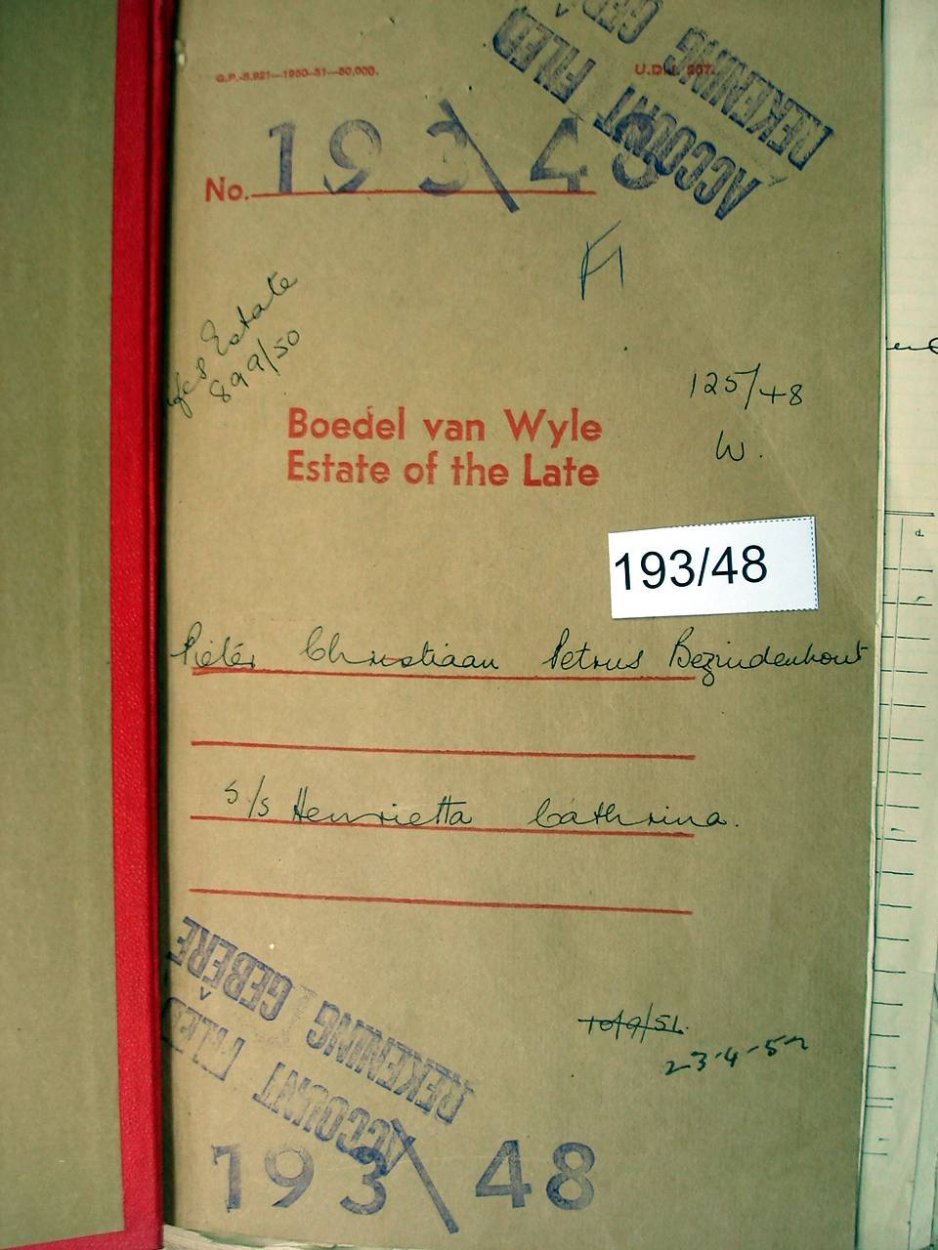 G.P.-S.921—1950-51—50,000.
U.D.J. 267.
ACCOUNT FILED
REKENING
No. 193/48
F1
Estate
899/50
125/48
W.
Boedel van Wyle
Estate of the Late
193/48
Pieter Christiaan Petrus Bezuidenhout
S/S Henrietta Cathrina.
REKENING GEBERE
ACCOUNT FILED
10/9/51.
23-4-52
193/48